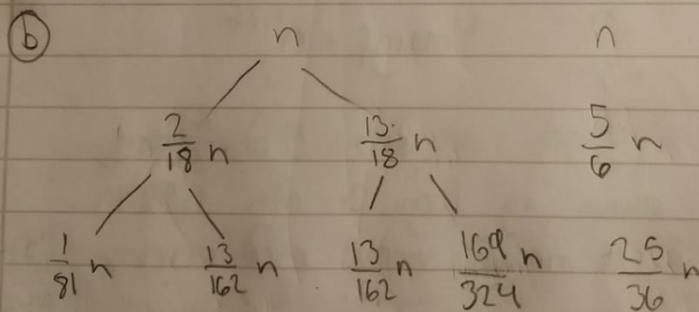 b n n
2/18 n 13/18 n 5/6 n
1/81 n 13/162 n 13/162 n 169/324 n 25/36 n